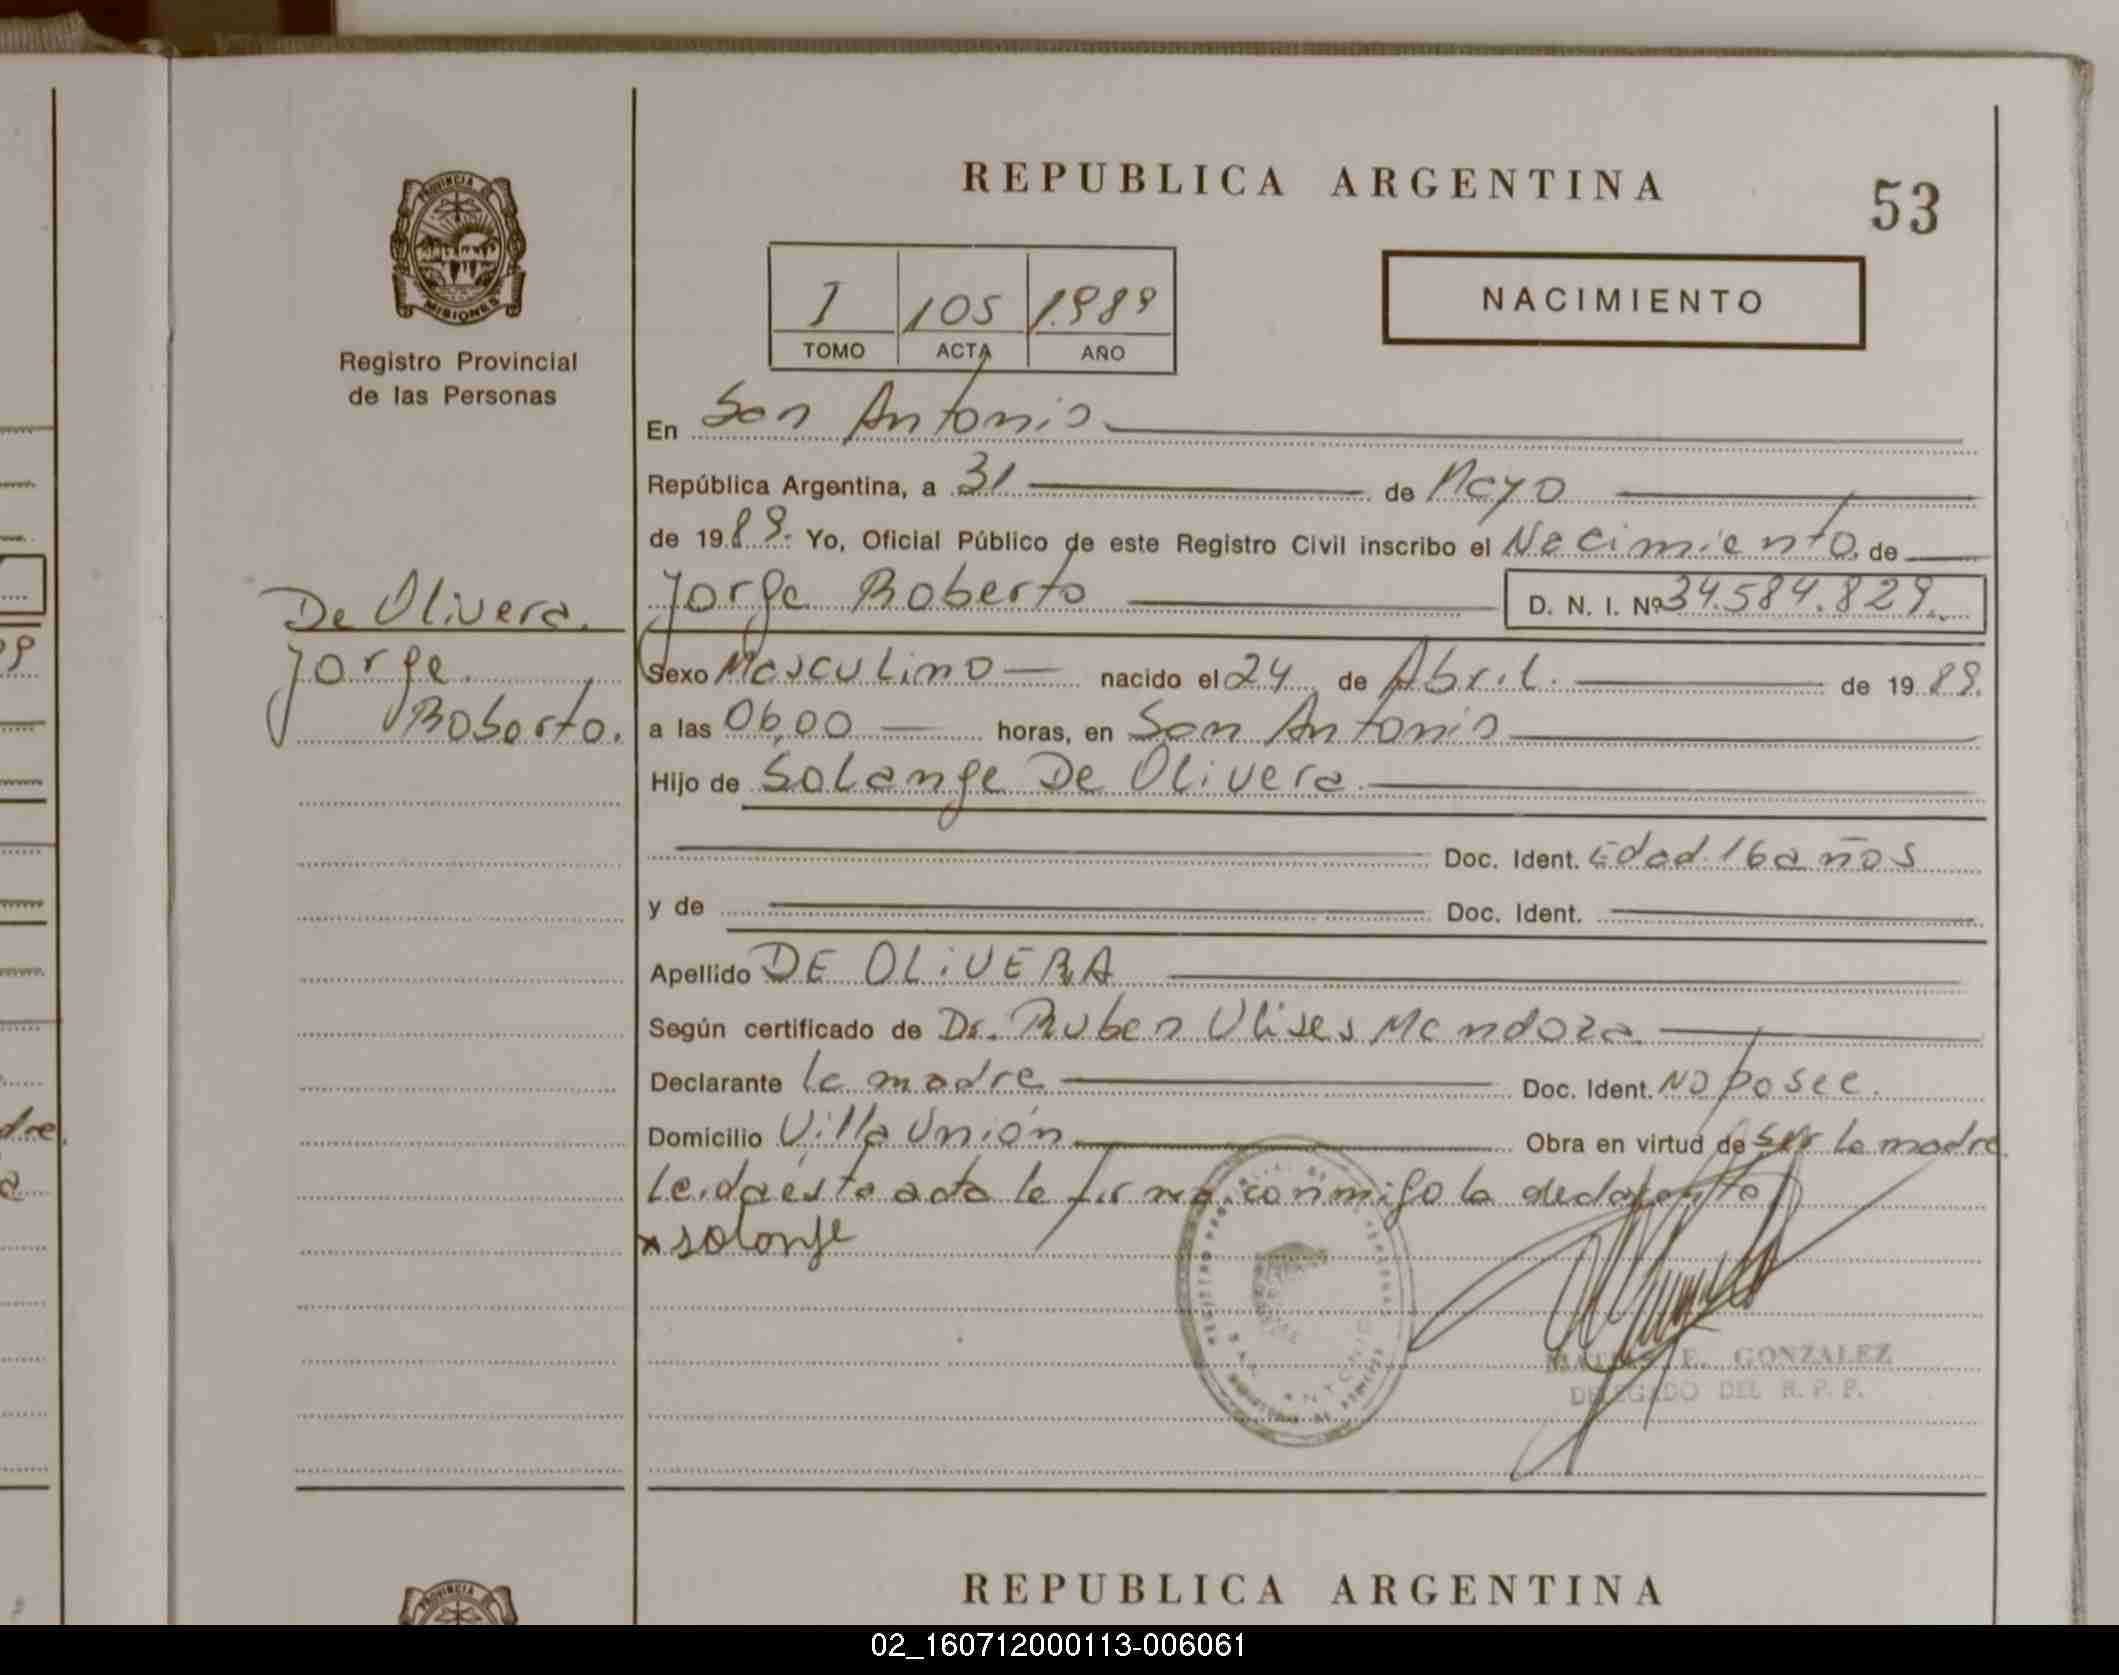 REPUBLICA ARGENTINA
53
PROVINCIA
MISIONES
Registro Provincial
de las Personas
I 105 1989
TOMO ACTA AÑO
NACIMIENTO
En San Antonio
República Argentina, a 31 de Mayo
de 1989. Yo, Oficial Público de este Registro Civil inscribo el Nacimiento de
De Olivera.
Jorge
Roberto.
Jorge Roberto D. N. I. Nº 34.584.829.
Sexo Masculino nacido el 24 de Abril. de 1989.
a las 06,00 horas, en San Antonio
Hijo de Solange De Olivera.
Doc. Ident. Edad 16 años
y de Doc. Ident.
Apellido DE OLIVERA
Según certificado de Dr. Ruben Ulises Mendoza.
Declarante la madre Doc. Ident. No posee.
Domicilio Villa Unión Obra en virtud de ser la madre
Leida ésta acta la firma conmigo la declarante
x solanje
E. GONZALEZ
DELEGADO DEL R. P. P.
REPUBLICA ARGENTINA
PROVINCIA
02_160712000113-006061